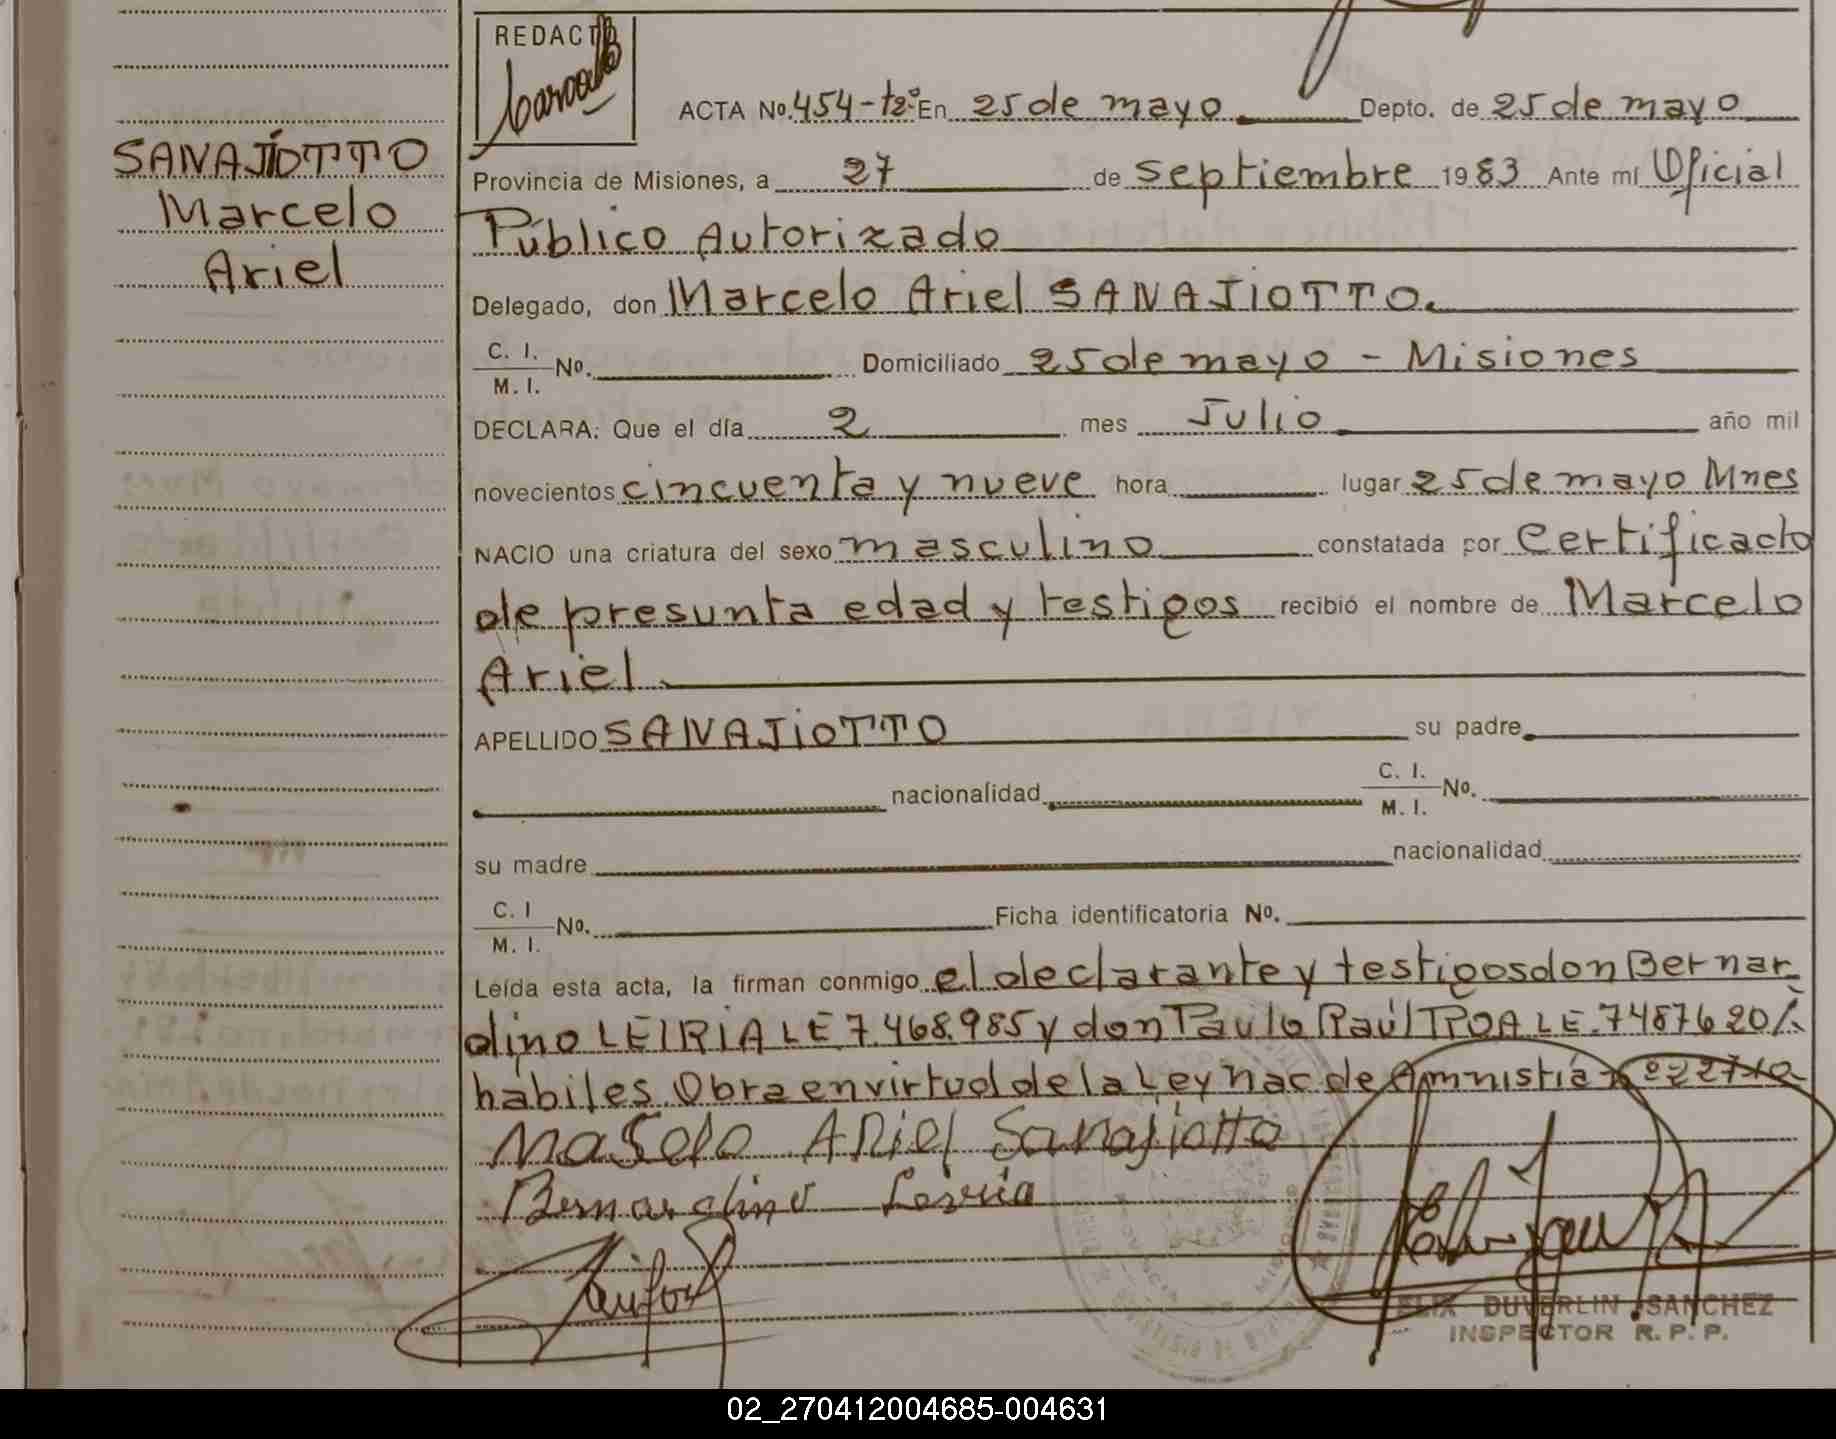 REDACTO
ACTA No. 454-tº2º En 25 de mayo Depto. de 25 de mayo
SANAJIOTTO
Marcelo
Ariel
Provincia de Misiones, a 27 de septiembre 1983 Ante mí Oficial
Público Autorizado
Delegado, don Marcelo Ariel SANAJIOTTO.
C. I.
M. I. No. Domiciliado 25 de mayo - Misiones
DECLARA: Que el día 2 mes Julio año mil
novecientos cincuenta y nueve hora lugar 25 de mayo Mnes
NACIO una criatura del sexo masculino constatada por Certificado
de presunta edad y testigos recibió el nombre de Marcelo
Ariel
APELLIDO SANAJIOTTO su padre
nacionalidad C. I.
M. I. No.
su madre nacionalidad
C. I
M. I. No. Ficha identificatoria No.
Leída esta acta, la firman conmigo el declarante y testigos don Bernar-
dino LEIRIA LE 7.468.985 y don Paulo Raúl TROA LE. 7487620/
habiles. Obra en virtud de la Ley Nac de Amnistía nº 22710
Maselo Ariel Sanajiotto
Bernardino Leiria
FELIX DUVERLIN SANCHEZ
INSPECTOR R. P. P.
02_270412004685-004631